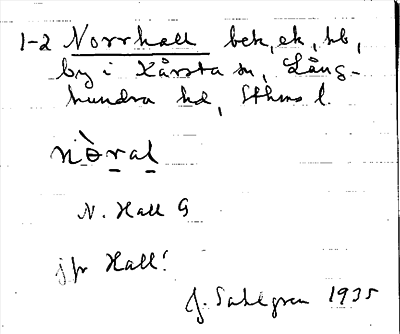 1-2 Norrhall bek, ek, hb,
by i Kårsta sn, Lång-
hundra hd, Sthms l.
nòral
N. Hall G
jfr Hall!
J. Sahlgren 1935